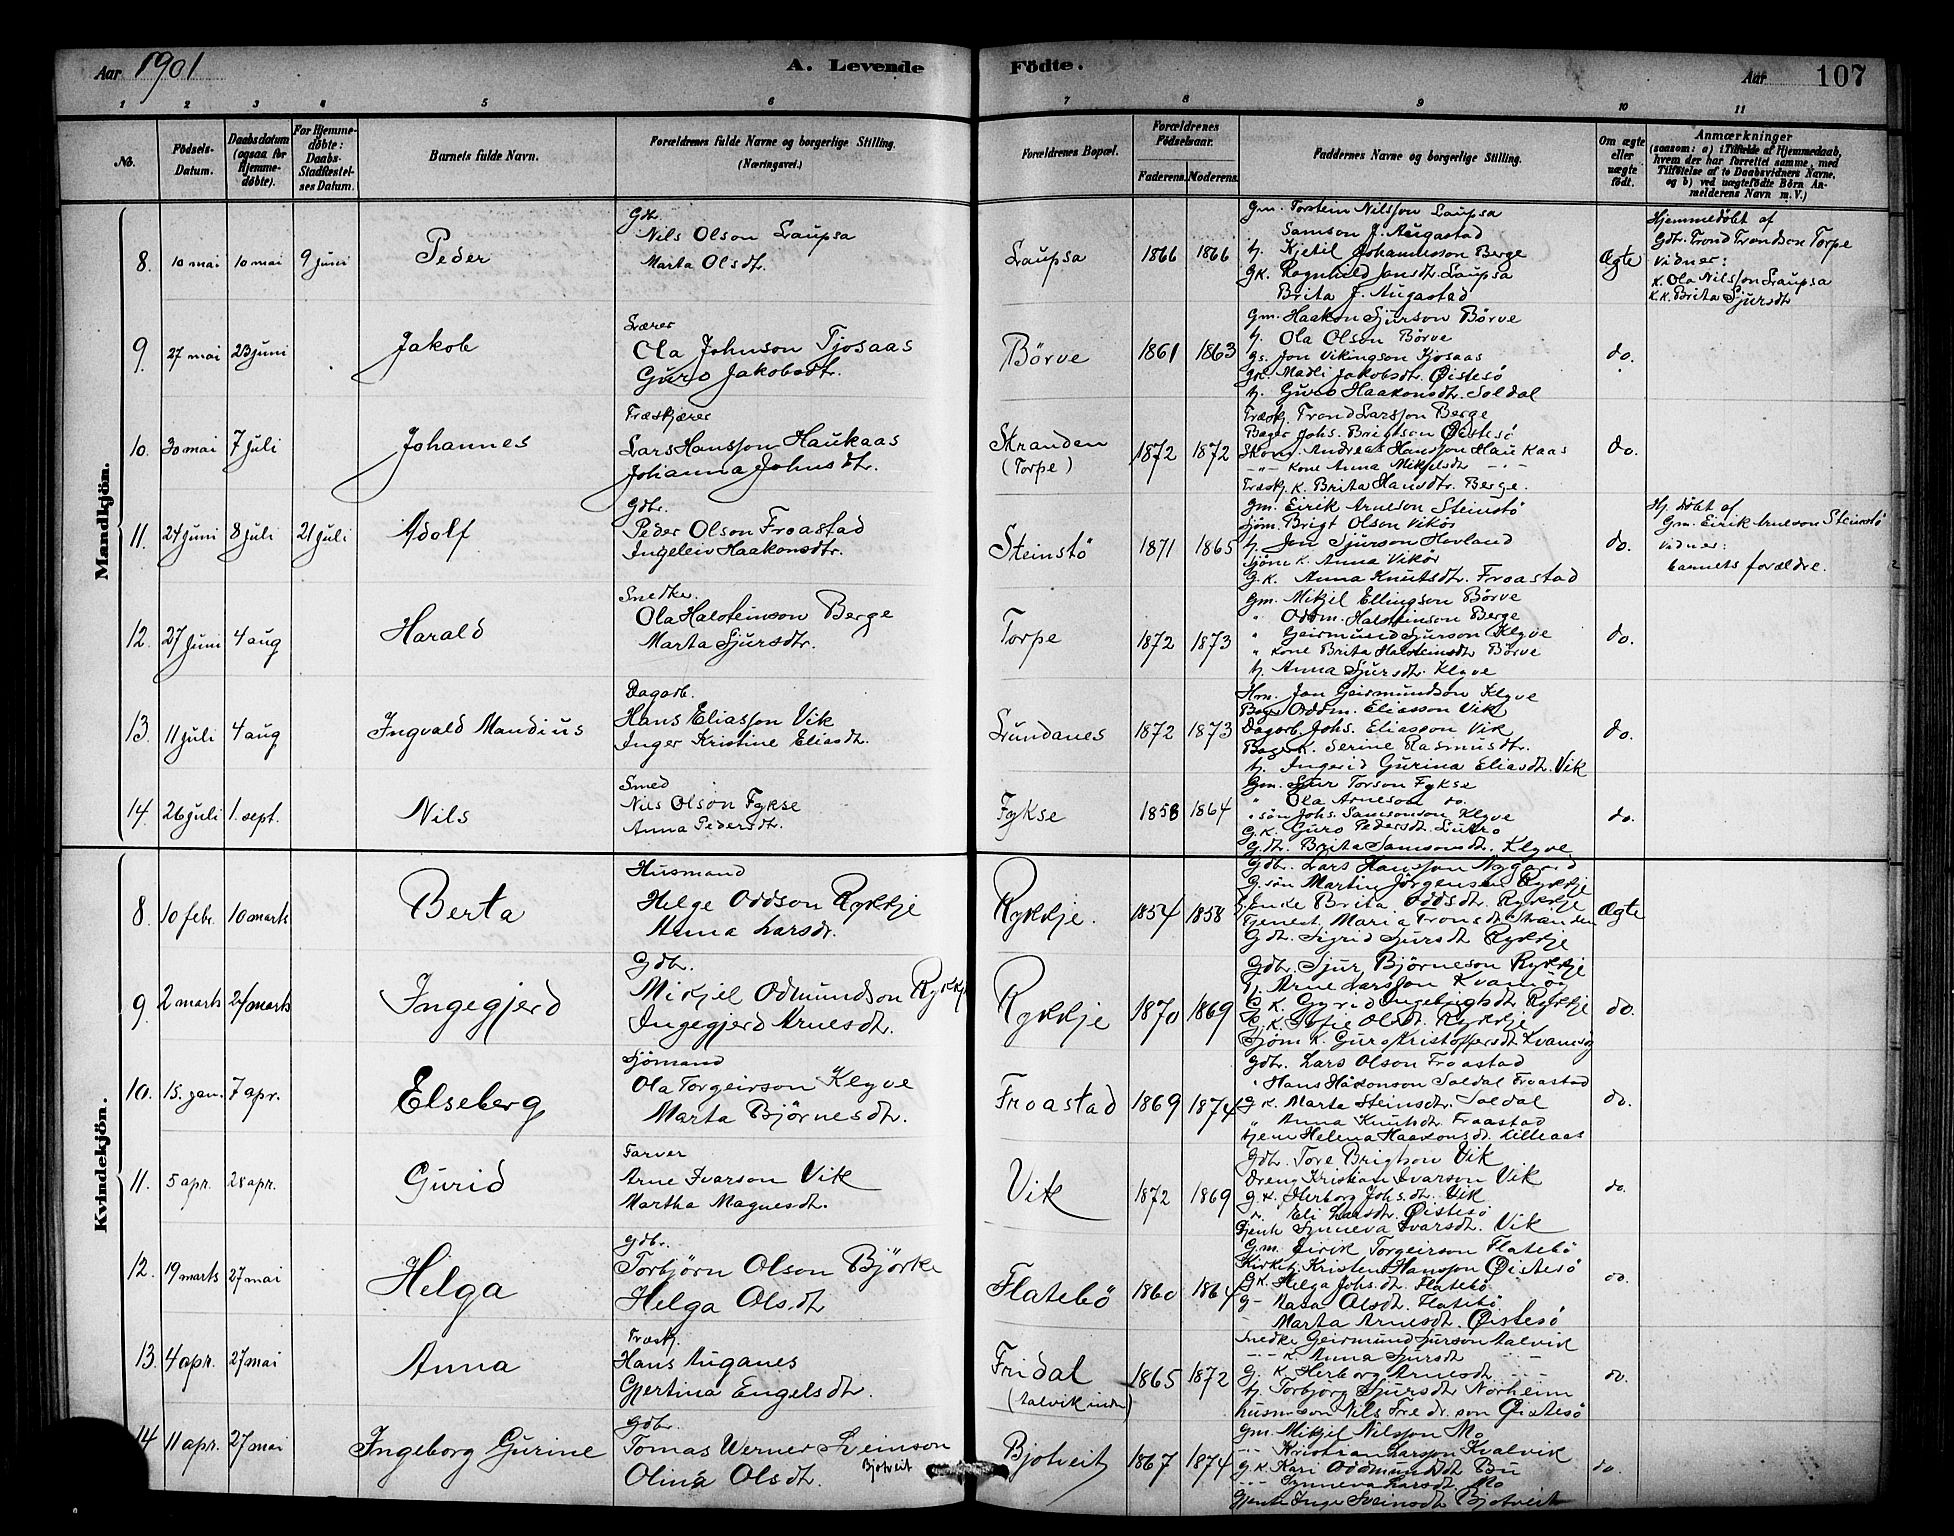 Aar 1901
A. Levende Födte.
Aar 107
1 2 3 4 5 6 7 8 9 10 11
No.
Födsels-Datum.
Daabsdatum (ogsaa for Hjemmedøbte).
For Hjemmedøbte: Daabs-Stadfæstelses Datum.
Barnets fulde Navn.
Forældrenes fulde Navne og borgerlige Stilling. (Næringsvei.)
Forældrenes Bopæl.
Forældrenes Födselsaar.
Faderens. Moderens.
Faddernes Navne og borgerlige Stilling.
Om ægte eller uægte født.
Anmærkninger
(saasom: a) i Tilfælde af Hjemmedaab, hvem der har forrettet samme, med Tilføielse af to Daabsvidners Navne, og b) ved uægtefødte Börn Anmelderens Navn m. V.)
Mandkjön.
8. 10 mai 10 mai 9 juni Peder
Gdr.
Nils Olson Laupsa
Marta Olsdt.
Laupsa 1866 1866
Gm. Torstein Nilsson Laupsa
Samson J. Augastad
tj. Kjetil Johannesson Berge
Gk. Ragnhild Jonsdt. Laupsa
Brita J. Augastad
Ægte
Hjemmedöbt af
Gdr. Trond Trondson Torpe
Vidner:
K. Ola Nilsson Laupsa
K.K. Brita Sjursdt
9. 27 mai 23 juni Jakob
Lærer
Ola Johnson Tjosaas
Guro Jakobsdtr.
Börve 1861 1863
Gm. Haakon Sjurson Börve
tj. Ola Olson Börve
Gs. Jon Vikingson Tjosaas
Gk. Madli Jakobsdt. Øistesö
tj. Guro Haakonsdt. Soldal
do.
10. 30 mai 7 juli Johannes
Træskjærer
Lars Hansson Haukaas
Johanna Johnsdt.
Stranden
(Torpe)
1872 1872
Træskj. Trond Larsson Berge
Bager Johs. Brigtson Øistesö
Skom. Andreas Hansson Haukaas
-"- Kone Anna Mikjelsdt -"-
Træskj. K. Brita Hansdtr. Berge.
do.
11. 24 juni 8 juli 21 juli Adolf
Gdbr.
Peder Olson Froastad
Ingeleiv Haakonsdtr.
Steinstö 1871 1865
Gm. Eirik Arneson Steinstö
Sjöm. Brigt Olson Vikör
tj. Jon Sjurson Hovland
Sjöm K. Anna Vikör
G.K. Anna Knutsdt. Froastad
do.
Hj. döbt af
Gm. Eirik Arneson Steinstö
Vidner:
barnets forældre.
12. 27 juni 4 aug Harald
Snedker.
Ola Halsteinson Berge
Marta Sjursdtr.
Torpe 1872 1873
Gm. Mikjel Ellingson Börve
" Oddm. Halsteinson Berge
" Geirmund Sjurson Klyve
" Kone Brita Halsteinsdt Börve
tj. Anna Sjursdt. Klyve
do.
13. 11 juli 4 aug Ingvald Mandius
Dagarb.
Hans Eliasson Vik
Inger Kristine Eliasdt.
Lundanes 1872 1873
Hm. Jon Geirmundson Klyve
Bager Oddm. Eliasson Vik
Dagarb. Johs. Eliasson Vik
Bager K. Serine Rasmusdtr.
tj. Ingerid Gurina Eliasdt. Vik
do.
14. 26 juli 1. sept. Nils
Smed
Nils Olson Fykse
Anna Pedersdt.
Fykse 1858 1864
Gm. Sjur Torson Fykse
" Ola Arneson do.
" sön Johs. Samsonson Klyve
G.K. Guro Pedersdt. Lutro
G.dt. Brita Samsonsdt. Klyve
do.
Kvindekjön.
8. 10 febr. 10 marts Berta
Husmand
Helge Oddson Rykkje
Anna Larsdr.
Rykkje. 1854 1858
Gdb. Lars Hansson Nygard
G.sön Martin Jörgensen Rykkje
Enke Brita Oddsdt. Rykkje
Tjenest. Maria Tronsdt. Stranden
Gdt. Sigrid Sjursdt Rykkje
Ægte
9. 2 marts 24 marts Ingegjerd
Gdbr.
Mikjel Odmundson Rykkje
Ingegjerd Arnesdt.
Rykkje 1870 1869
Gdbr. Sjur Björneson Rykkje
Tj. Arne Larsson Kvamöy
G.K. Gyrid Ingebrigtsdt Rykkje
G.K. Sofie Olsdt Rykkje
Sjöm K. Guro Kristoffersdt Kvamsöy
do.
10. 15. jan. 7 apr. Elseberg
Sjömand
Ola Torgeirson Klyve
Marta Björnesdt.
Froastad 1869 1874
Gdbr. Lars Olson Froastad
" Hans Håkonson Soldal Froastad
G.K. Marta Steinsdtr. Soldal
" Anna Knutsdt. Froastad
tjene Helena Haakonsdt. Lilleaas
do.
11. 5 apr. 28 apr. Gurid
Farver
Arne Ivarson Vik
Martha Magnesdt.
Vik 1872 1869
Gdb. Tore Brigtson Vik
Dreng Kristian Ivarson Vik
G.K. Herborg Johs.dt. Vik
Eli Larsdt. Øistesö
Gjente Synneva Ivarsdt. Vik
do.
12. 19 marts 27 mai Helga
Gdbr.
Torbjörn Olson Björke
Helga Olsdt
Flatebö 1860 1864
G.m. Eirik Torgeirson Flatebö
Kirketj. Kristen Hansson Øistesö
GK. Helga Johs.dt. Flatebö
G- Olsdt. Flatebö
- Marta Arnesdt. Øistesö
do.
13. 4 apr. 27 mai Anna
Træskj.
Hans Auganes
Gjertina Engelsdtr.
Fridal
(Aalvik indre)
1865 1872
Snedker Geirmund Sjurson Aalvik
-"- K. Anna Sjursdt -"-
G. K. Herborg Arnesdt -"-
tj. Torbjorg Sjursdt Norheim
husm.son Nils Fredr.son Øistesö
do.
14 11 apr. 27 mai Ingeborg Gurine
Gdbr.
Tomas Werner Sveinson
Bjotveit
Olina Olsdt.
Bjotveit 1867 1874
Gm. Mikjel Nilsson Mo
-"- Kristian Larsson Kvalvik
G.K. Kari Oddmundsdt Bu
-"- Synneva Larsdt. Mo
Gjente Inga Sveinsdt Bjotveit
do.